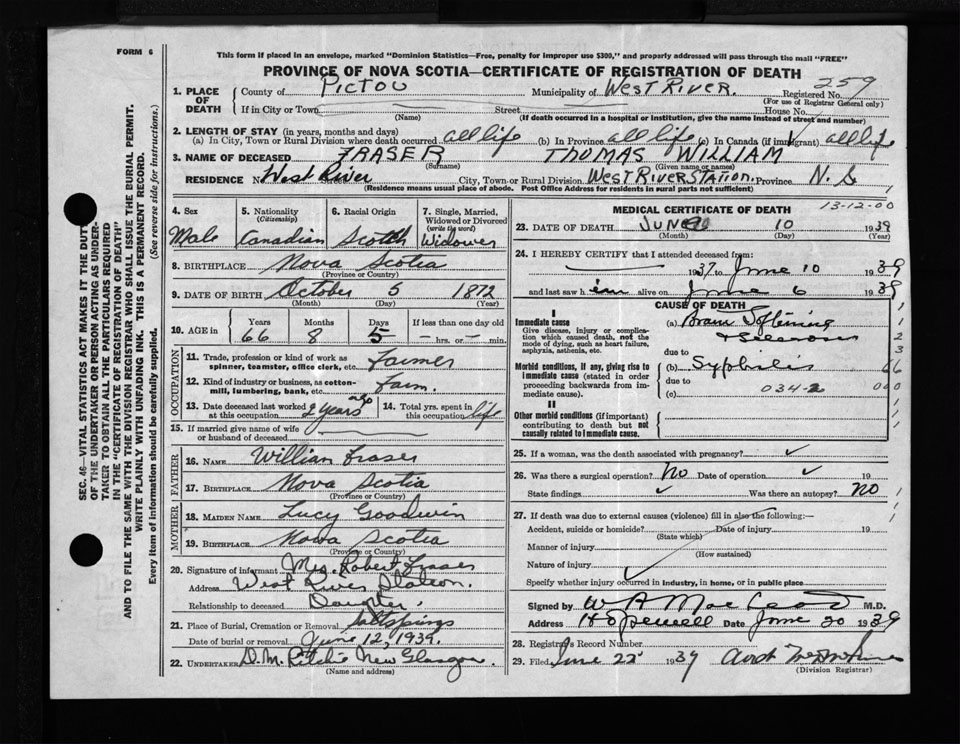 FORM 6
This form if placed in an envelope, marked "Dominion Statistics—Free, penalty for improper use $300," and properly addressed will pass through the mail "FREE"
PROVINCE OF NOVA SCOTIA—CERTIFICATE OF REGISTRATION OF DEATH
259
1. PLACE OF DEATH County of Pictou Municipality of West River. Registered No.
(For use of Registrar General only)
If in City or Town Street House No.
(Name) (If death occurred in a hospital or institution, give the name instead of street and number)
2. LENGTH OF STAY (in years, months and days)
(a) In City, Town or Rural Division where death occurred all life (b) In Province all life (c) In Canada (if immigrant) all life
3. NAME OF DECEASED FRASER THOMAS WILLIAM
(Surname) (Given name or names)
RESIDENCE No. West River City, Town or Rural Division WEST RIVER STATION. Province N. S
(Residence means usual place of abode. Post Office Address for residents in rural parts not sufficient)
4. Sex Male
5. Nationality (Citizenship) Canadian
6. Racial Origin Scotch
7. Single, Married, Widowed or Divorced (write the word) Widower
8. BIRTHPLACE Nova Scotia
(Province or Country)
9. DATE OF BIRTH October 5 1872
(Month) (Day) (Year)
10. AGE in Years Months Days If less than one day old
66 8 5 hrs. or min.
OCCUPATION
11. Trade, profession or kind of work as spinner, teamster, office clerk, etc. Farmer
12. Kind of industry or business, as cotton-mill, lumbering, bank, etc. Farm.
13. Date deceased last worked at this occupation 2 years ago
14. Total yrs. spent in this occupation life
15. If married give name of wife or husband of deceased
FATHER
16. NAME William Fraser
17. BIRTHPLACE Nova Scotia
(Province or Country)
MOTHER
18. MAIDEN NAME Lucy Goodwin
19. BIRTHPLACE Nova Scotia
(Province or Country)
20. Signature of informant Mrs. Robert Fraser
Address West River Station.
Relationship to deceased Daughter,
21. Place of Burial, Cremation or Removal Saltsprings
Date of burial or removal June 12, 1939.
22. UNDERTAKER D. M. Ritchie New Glasgow.
(Name and address)
MEDICAL CERTIFICATE OF DEATH 13-12-00
23. DATE OF DEATH JUNE 10 1939
(Month) (Day) (Year)
24. I HEREBY CERTIFY that I attended deceased from:
1937 to June 10 1939
and last saw h im alive on June 6 1939
CAUSE OF DEATH
I
Immediate cause
Give disease, injury or complication which caused death, not the mode of dying, such as heart failure, asphyxia, asthenia, etc.
(a) Brain Softening
& Sclerosis
due to
Morbid conditions, if any, giving rise to immediate cause (stated in order proceeding backwards from immediate cause).
(b) Syphilis
due to
(c) 034-2
II
Other morbid conditions (if important) contributing to death but not causally related to immediate cause.
25. If a woman, was the death associated with pregnancy?
26. Was there a surgical operation? No Date of operation 19
State findings Was there an autopsy? No
27. If death was due to external causes (violence) fill in also the following:—
Accident, suicide or homicide? Date of injury 19
(State which)
Manner of injury
(How sustained)
Nature of injury
Specify whether injury occurred in industry, in home, or in public place
Signed by W A MacLeod M.D.
Address Hopewell Date June 20 1939
28. Registrar's Record Number
29. Filed June 22 1939
(Division Registrar)
SEC. 46—VITAL STATISTICS ACT MAKES IT THE DUTY OF THE UNDERTAKER OR PERSON ACTING AS UNDERTAKER TO OBTAIN ALL THE PARTICULARS REQUIRED IN THE "CERTIFICATE OF REGISTRATION OF DEATH" AND TO FILE THE SAME WITH THE DIVISION REGISTRAR WHO SHALL ISSUE THE BURIAL PERMIT.
WRITE PLAINLY WITH UNFADING INK. THIS IS A PERMANENT RECORD.
Every item of information should be carefully supplied. (See reverse side for instructions.)